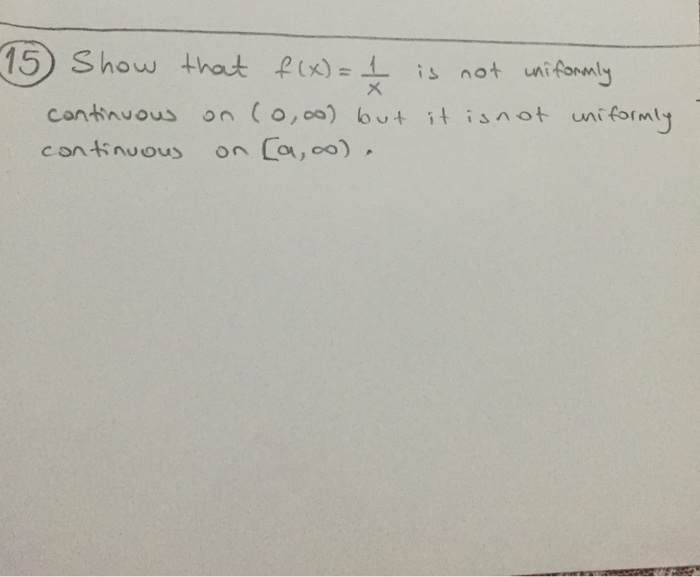 15) Show that f(x) = 1/x is not uniformly
continuous on (0,∞) but it is not uniformly
continuous on [a,∞).